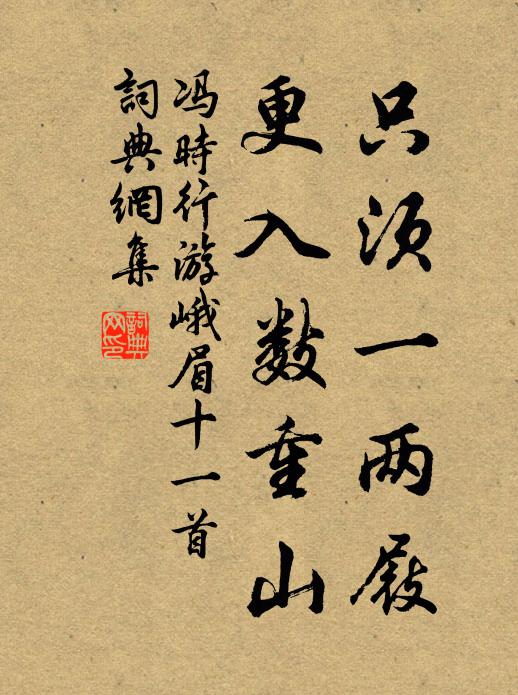 只须一两屐
更入数重山
冯時行游峨眉十一首
詞典網集
詞典
网印